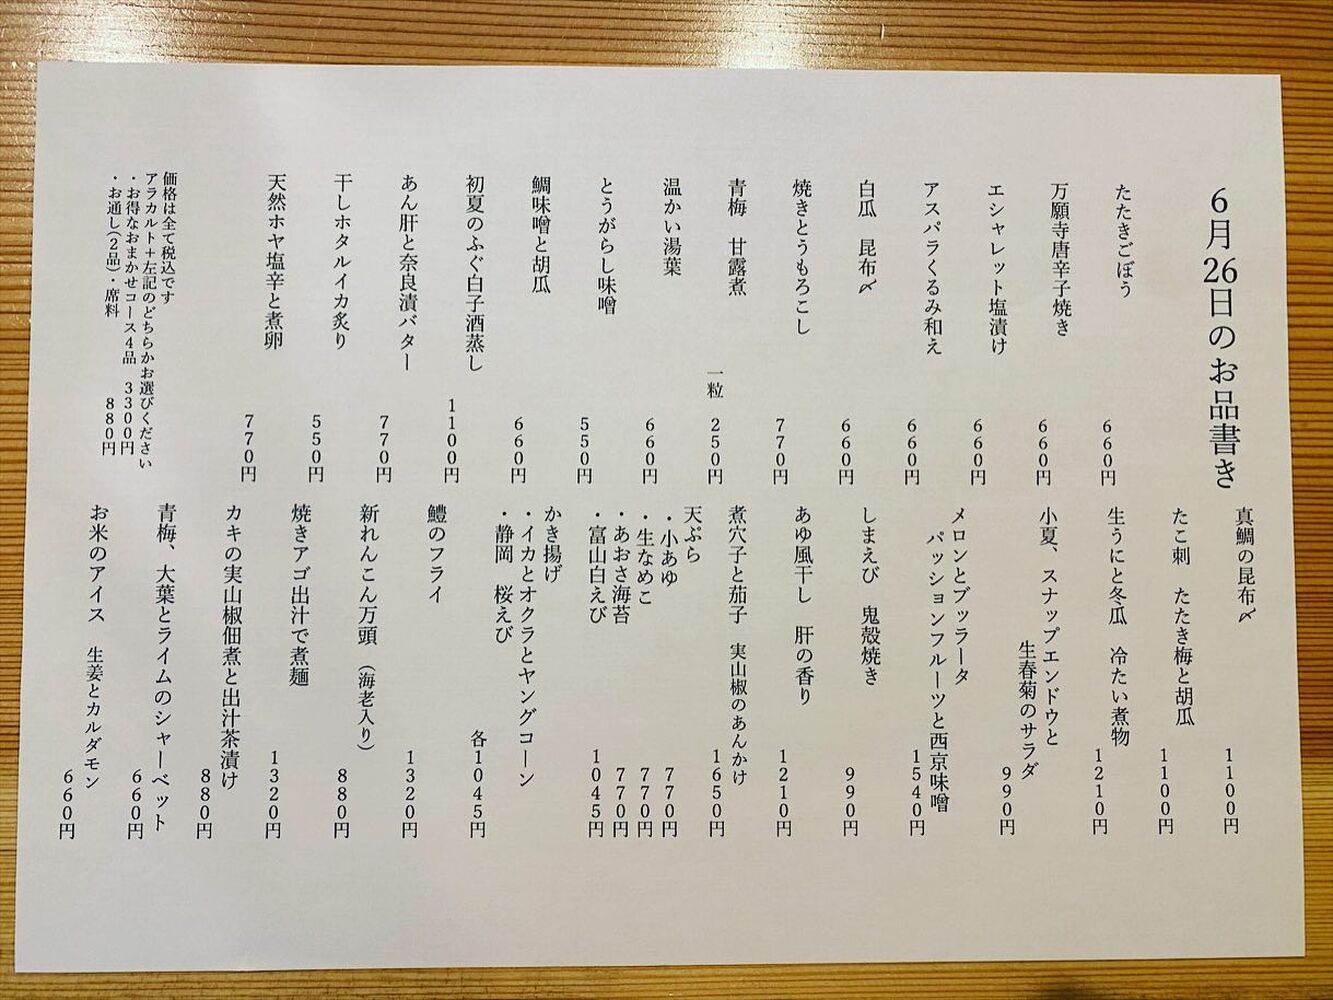 6月26日のお品書き
たたきごぼう 660円
万願寺唐辛子焼き 660円
エシャレット塩漬け 660円
アスパラくるみ和え 660円
白瓜 昆布〆 660円
焼きとうもろこし 770円
青梅 甘露煮 一粒 250円
温かい湯葉 660円
とうがらし味噌 550円
鯛味噌と胡瓜 660円
初夏のふぐ白子酒蒸し 1100円
あん肝と奈良漬バター 770円
干しホタルイカ炙り 550円
天然ホヤ塩辛と煮卵 770円
価格は全て税込です
アラカルト+左記のどちらかお選びください
・お得なおまかせコース4品 3300円
・お通し(2品)・席料 880円
真鯛の昆布〆 1100円
たこ刺 たたき梅と胡瓜 1100円
生うにと冬瓜 冷たい煮物 1210円
小夏、スナップエンドウと
生春菊のサラダ 990円
メロンとブッラータ
パッションフルーツと西京味噌 1540円
しまえび 鬼殻焼き 990円
あゆ風干し 肝の香り 1210円
煮穴子と茄子 実山椒のあんかけ 1650円
天ぷら
・小あゆ 770円
・生なめこ 770円
・あおさ海苔 770円
・富山白えび 1045円
かき揚げ
・イカとオクラとヤングコーン
・静岡 桜えび 各1045円
鱧のフライ 1320円
新れんこん万頭 (海老入り) 880円
焼きアゴ出汁で煮麺 1320円
カキの実山椒佃煮と出汁茶漬け 880円
青梅、大葉とライムのシャーベット 660円
お米のアイス 生姜とカルダモン 660円